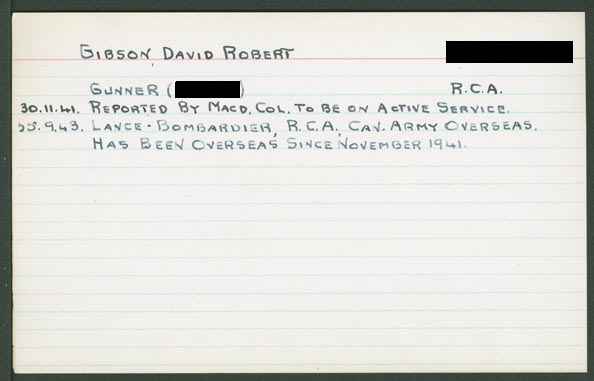 GIBSON, DAVID ROBERT
GUNNER ( ) R.C.A.
30.11.41. REPORTED BY MACD. COL. TO BE ON ACTIVE SERVICE.
25.9.43. LANCE-BOMBARDIER, R.C.A., CAN. ARMY OVERSEAS.
HAS BEEN OVERSEAS SINCE NOVEMBER 1941.